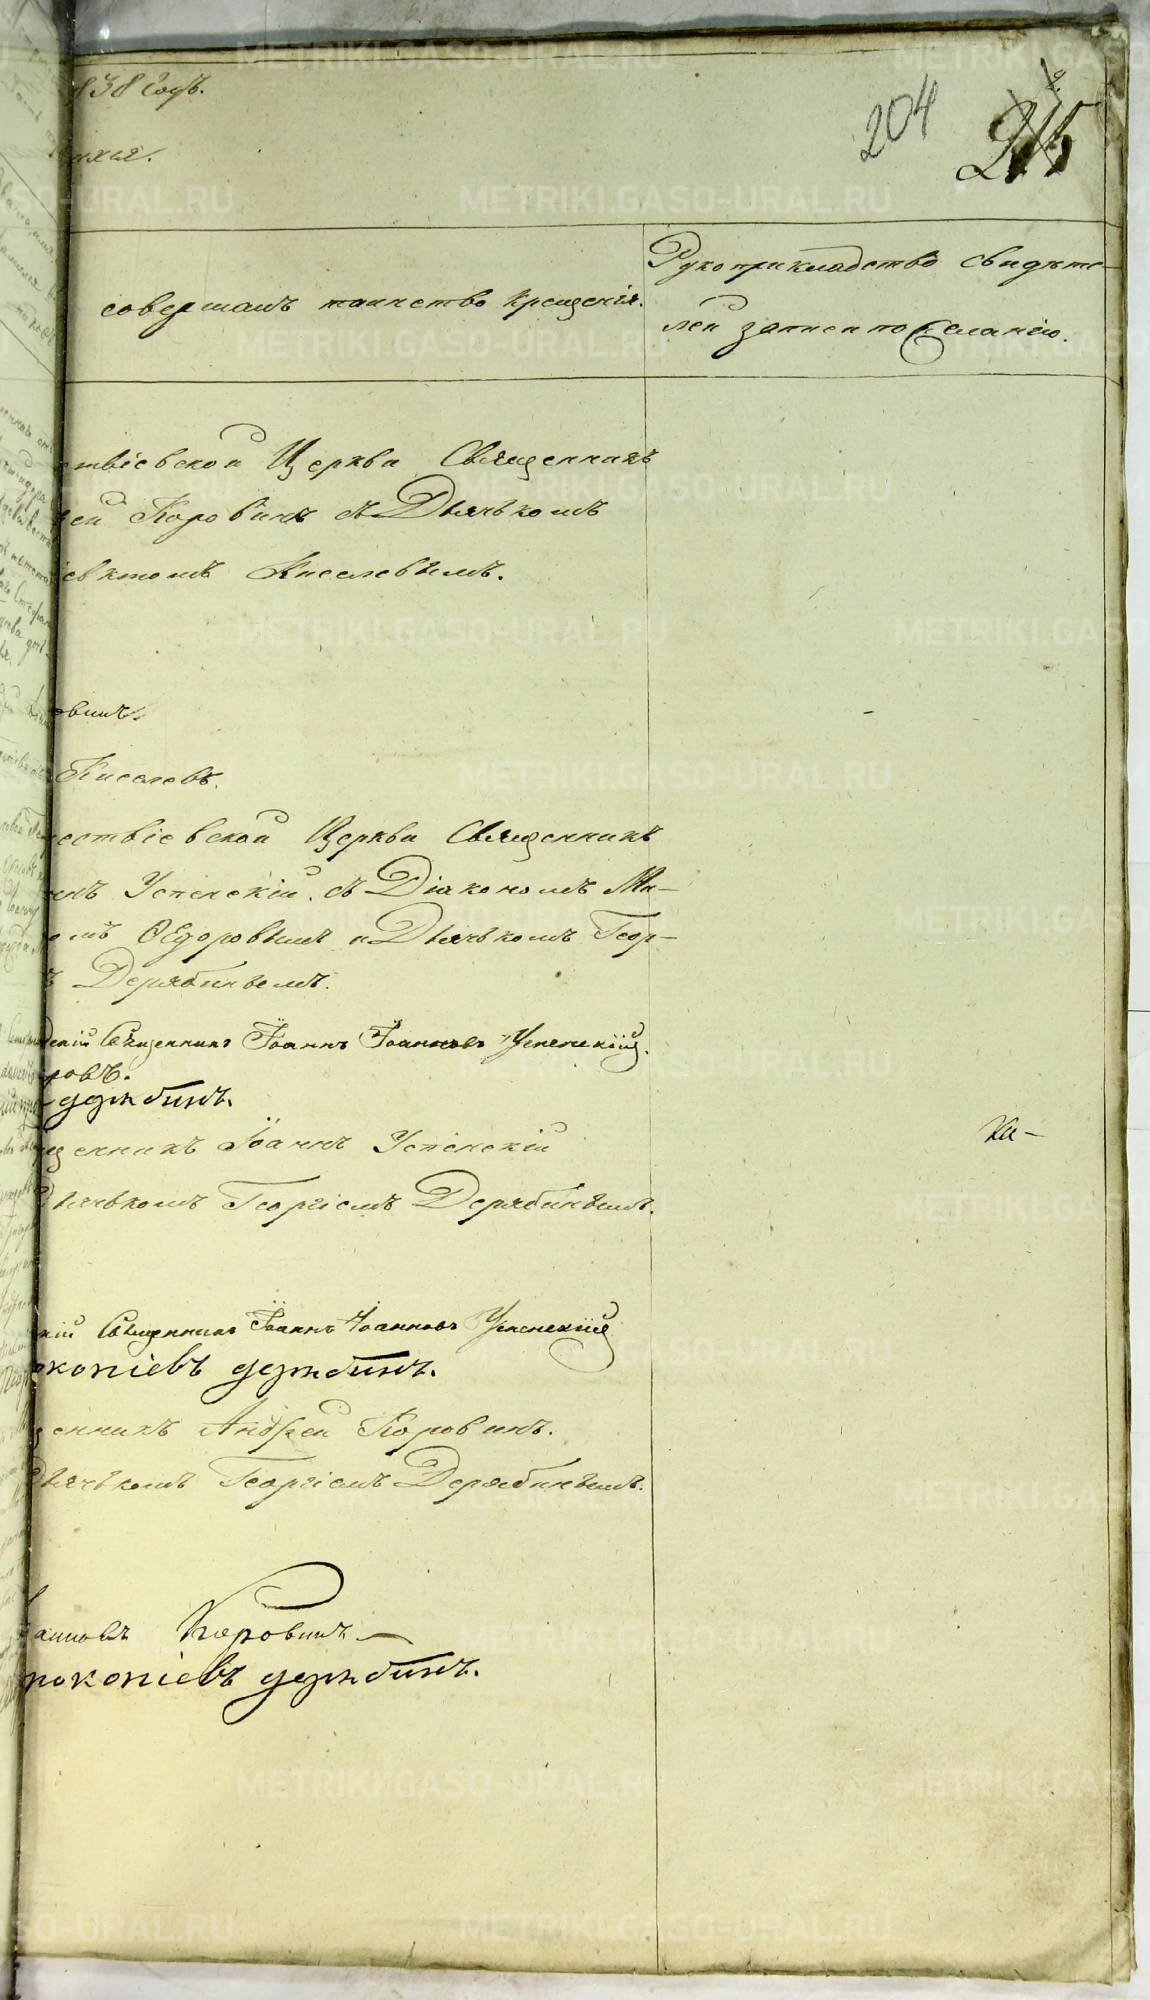 838 Годъ.
204
215
совершалъ таинство крещенія.
Рукоприкладство свидѣте-
лей записи по желанію.
ствіевской Церкви Священникъ
ей Коровинъ съ Дьячькомъ
Киселевымъ.
овинъ.
Киселевъ.
ествіевской Церкви Священникъ
Успенскій съ Діакономъ Ми-
омъ Ѳедоровымъ и Дьячькомъ Геор-
ъ Дерябинымъ.
Священникъ Іоаннъ Іоанновъ Успенскій.
ровъ.
дерябинъ.
щенникъ Іоаннъ Успенскій
Дьячькомъ Георгіемъ Дерябинымъ.
кій Священникъ Іоаннъ Іоанновъ Успенскій
окопіевъ дерябинъ.
щенникъ Андрей Коровинъ.
Дьячькомъ Георгіемъ Дерябинымъ.
анновъ Коровинъ
рокопіевъ дерябинъ.